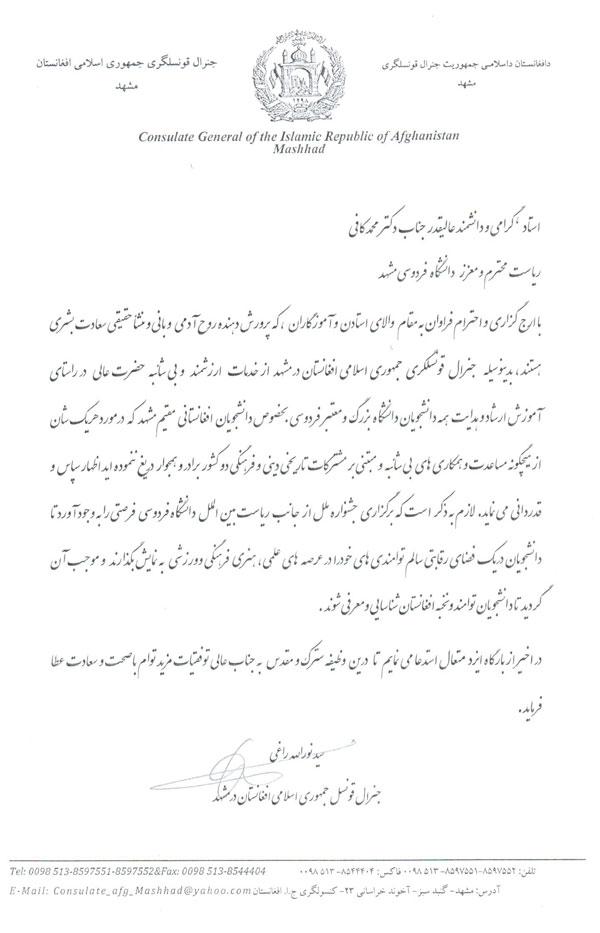 دافغانستان داسلامی جمهوریت جنرال قونسلگری
مشهد
جنرال قونسلگری جمهوری اسلامی افغانستان
مشهد
۱۲۹۸
Consulate General of the Islamic Republic of Afghanistan
Mashhad
استاد گرامی و دانشمند عالیقدر جناب دکتر محمد کافی
ریاست محترم و معزز دانشگاه فردوسی مشهد
با ارج گزاری و احترام فراوان به مقام والای استادن و آموزگاران ، که پرورش دهنده روح آدمی و بانی و منشأ حقیقی سعادت بشری
هستند، بدینوسیله جنرال قونسلگری جمهوری اسلامی افغانستان در مشهد از خدمات ارزشمند و بی شائبه حضرت عالی در راستای
آموزش ارشاد و هدایت همه دانشجویان دانشگاه بزرگ و معتبر فردوسی بخصوص دانشجویان افغانستانی مقیم مشهد که در مورد هریک شان
از هیچگونه مساعدت و همکاری های بی شائبه و مبتنی بر مشترکات تاریخی دینی و فرهنگی دو کشور برادر و همجوار دریغ ننموده اید اظهار سپاس و
قدردانی می نماید. لازم به ذکر است که برگزاری جشنواره ملل از جانب ریاست بین الملل دانشگاه فردوسی فرصتی را به وجود آورد تا
دانشجویان در یک فضای رقابتی سالم توانمندی های خود را در عرصه های علمی، هنری فرهنگی و ورزشی به نمایش بگذارند و موجب آن
گردید تا دانشجویان توانمند و نخبه افغانستان شناسایی و معرفی شوند .
در اخیر از بارگاه ایزد متعال استدعا می نمایم تا درین وظیفه سترگ و مقدس به جناب عالی توفقیات مزید توام با صحت و سعادت عطا
فرماید .
سید نورالله راغی
جنرال قونسل جمهوری اسلامی افغانستان در مشهد
تلفن: ۸۵۹۷۵۵۲-۸۵۹۷۵۵۱-۵۱۳ ۰۰۹۸ فاکس: ۸۵۴۴۴۰۴-۵۱۳ ۰۰۹۸
Tel: 0098 513-8597551-8597552&Fax: 0098 513-8544404
آدرس: مشهد- گنبد سبز- آخوند خراسانی ۲۳- کنسولگری ج.ا. افغانستان
E-Mail: Consulate_afg_Mashhad@yahoo.com